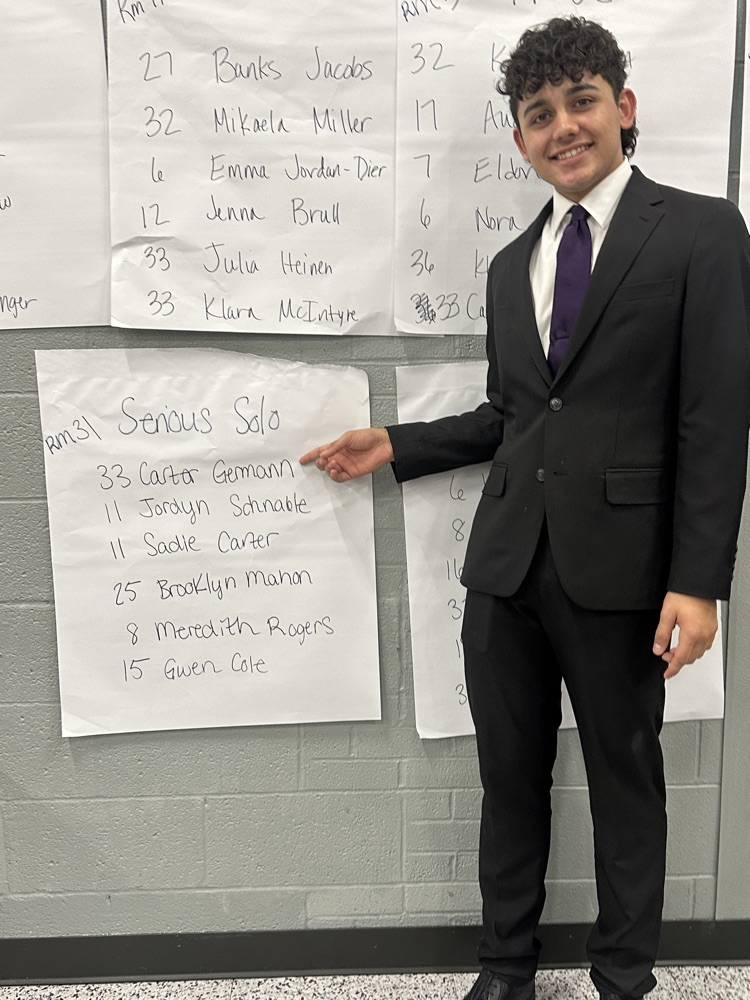 27 Banks Jacobs
32 Mikaela Miller
6 Emma Jordan-Dier
12 Jenna Brull
33 Julia Heinen
33 Klara McIntyre
32
17
7
6 Nora
36
33
RM31 Serious Solo
33 Carter Germann
11 Jordyn Schnable
11 Sadie Carter
25 Brooklyn Mahon
8 Meredith Rogers
15 Gwen Cole
6
8